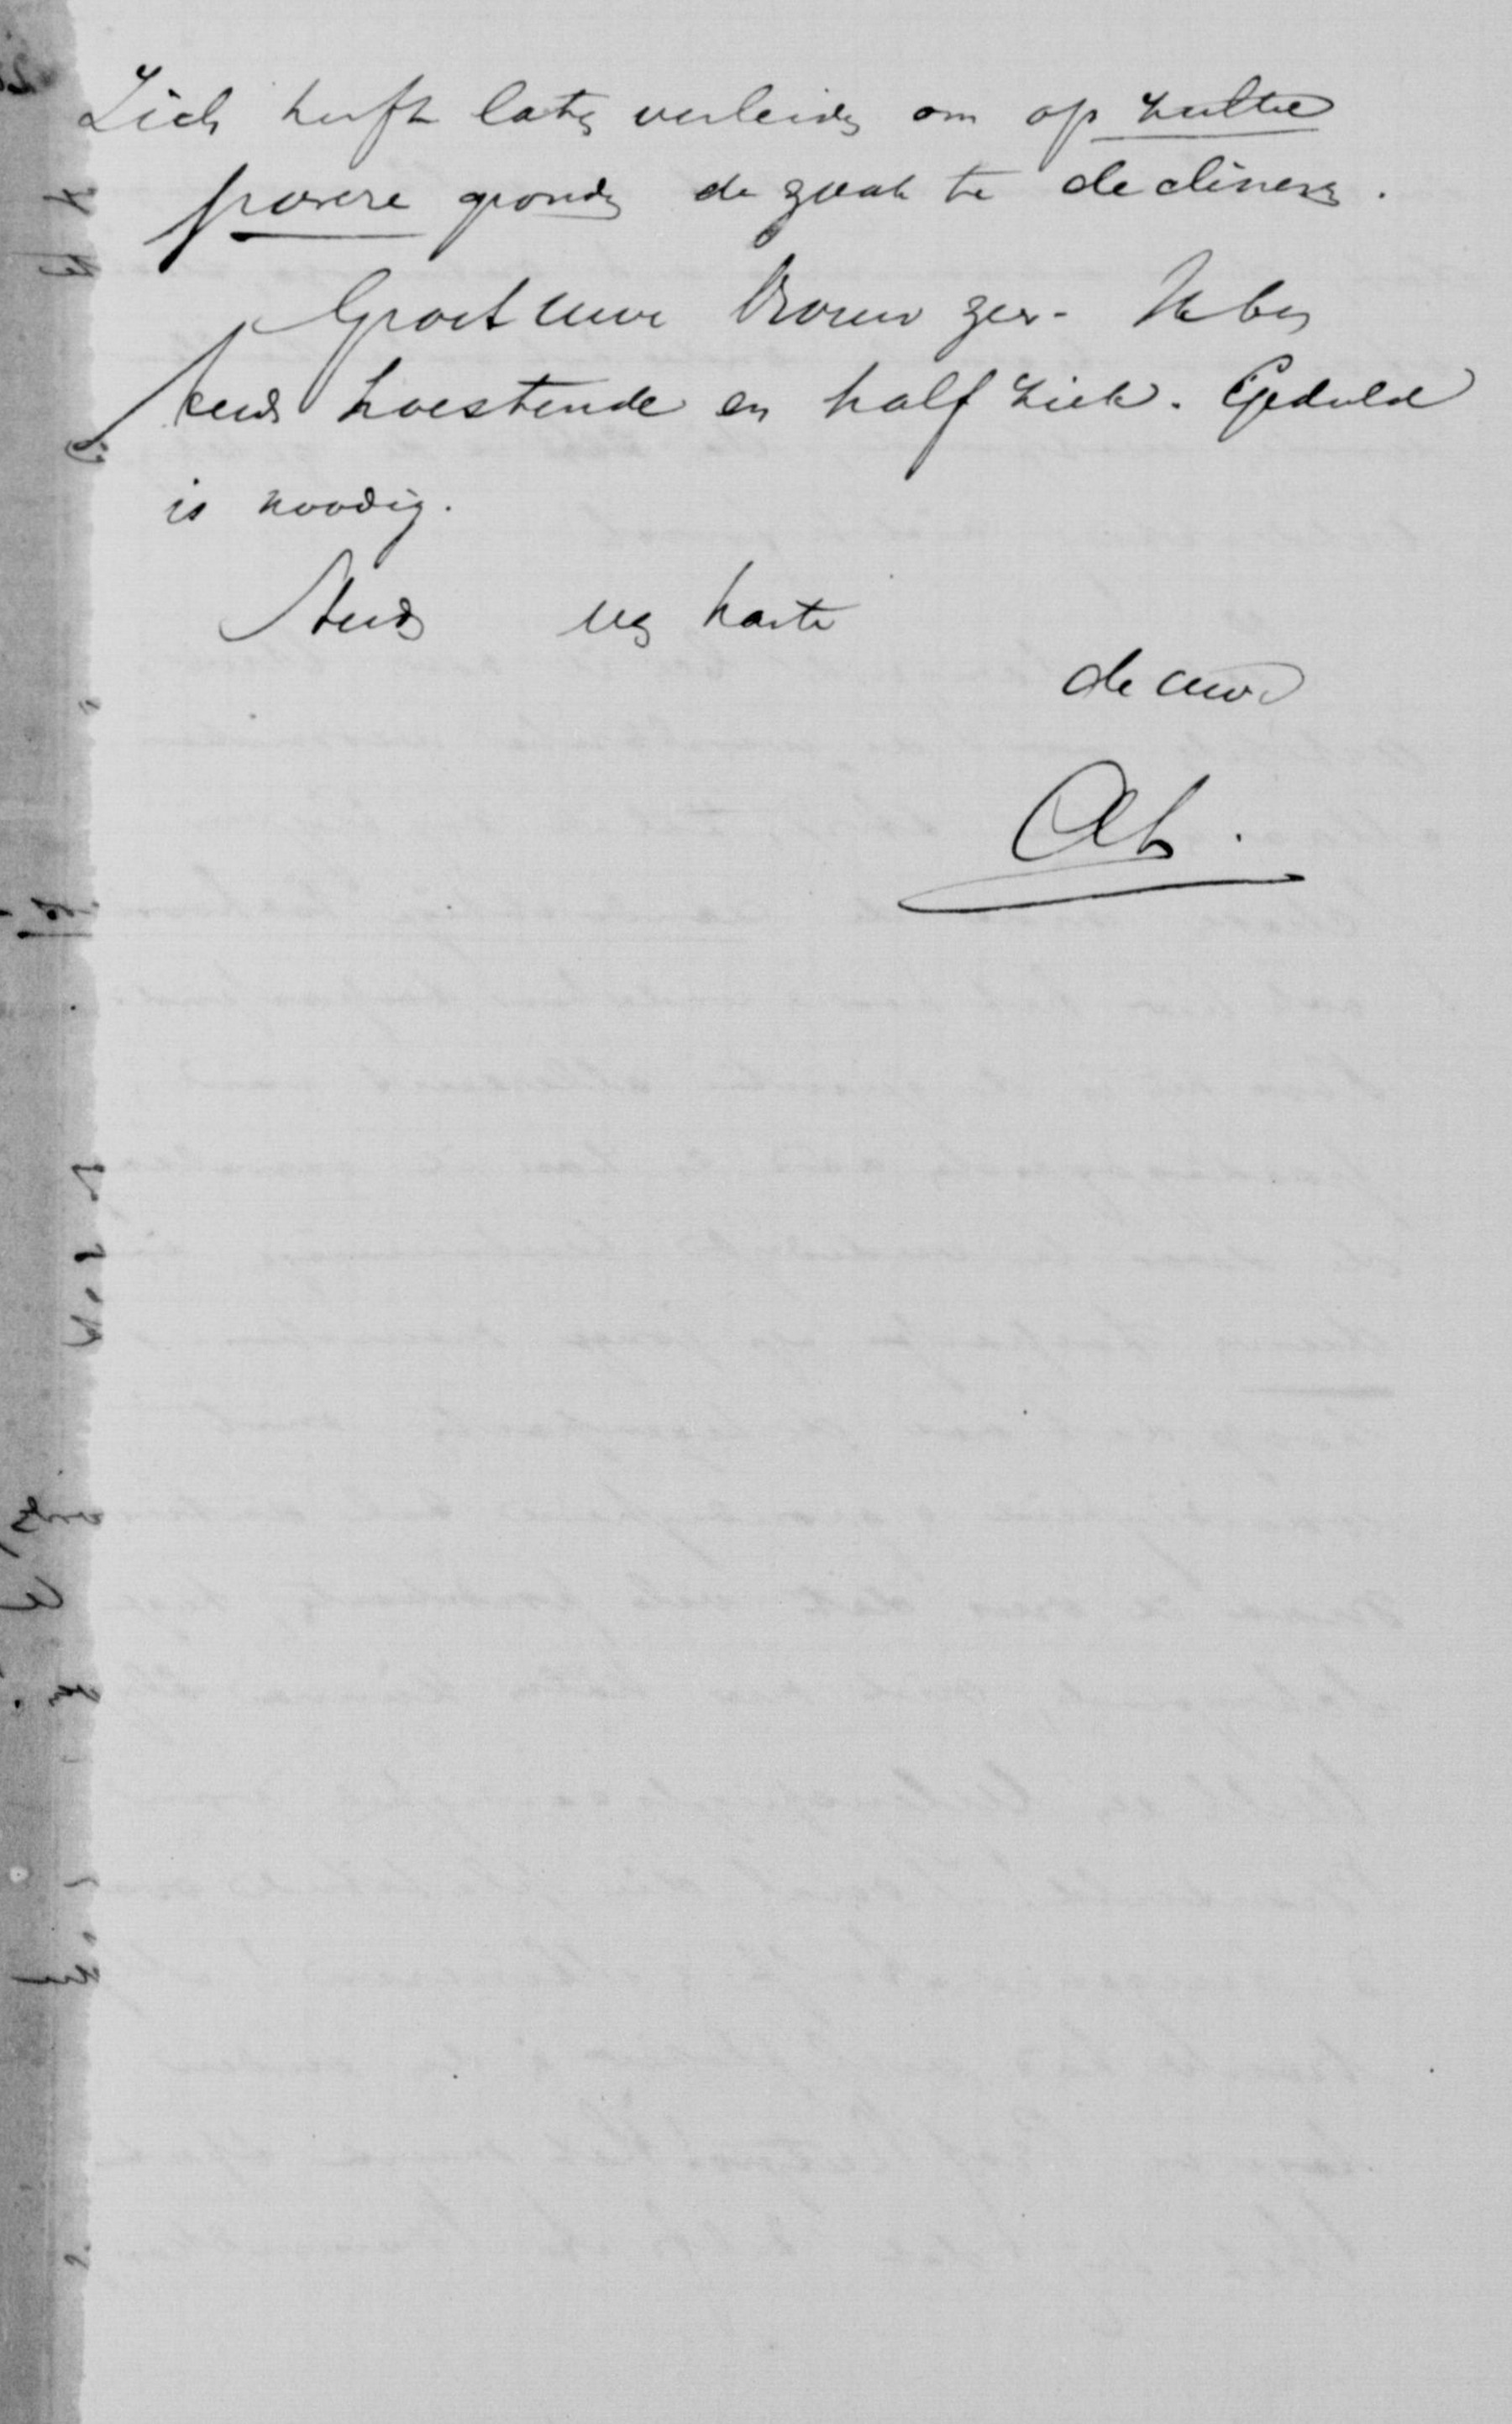 Zich heeft laten verleiden om op zulke
povere gronden de zaak te declineren.
Groet uwe Vrouw zeer. Ik ben
steeds hoestende en half ziek. Geduld
is noodig.
Steeds van harte
de uwe